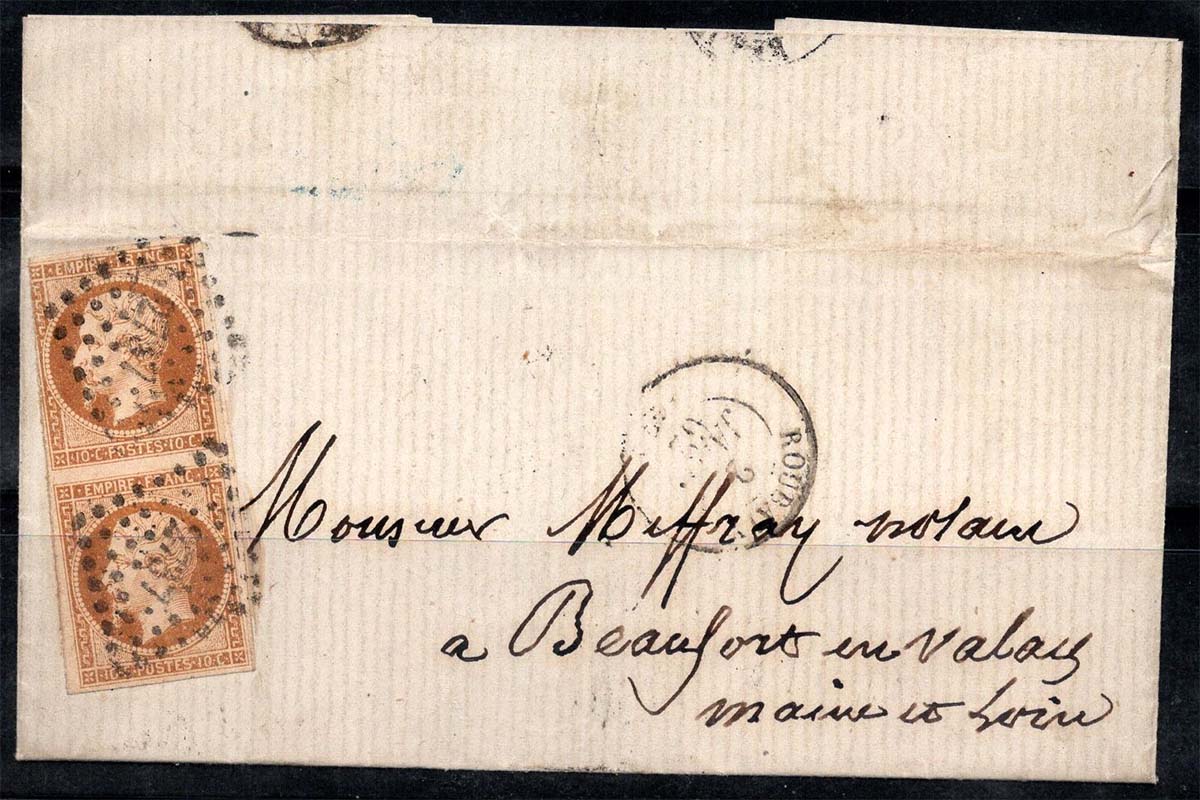 EMPIRE FRANC
10·C·POSTES·10·C·
EMPIRE FRANC
10·C·POSTES·10·C·
JANV
2
Monsieur Meffray notaire
a Beaufort en Valay
maine et Loire